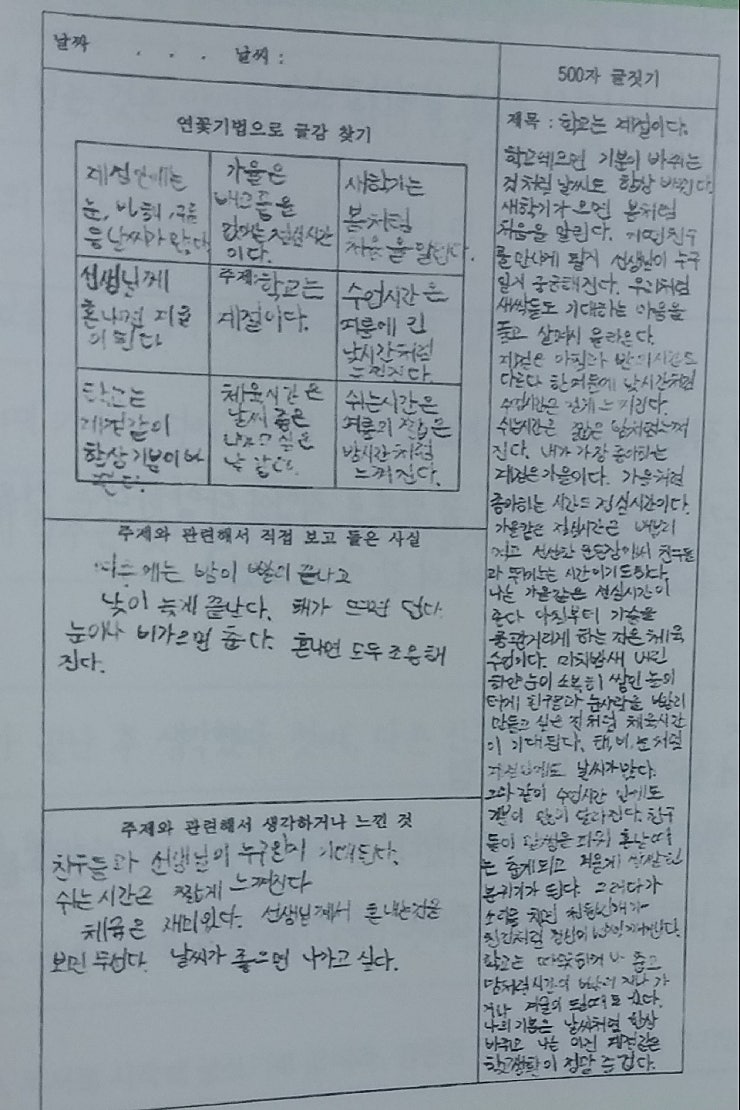 날짜 . . . 날씨 :
연꽃기법으로 글감 찾기
계절안에는
눈, 비, 구름
등 날씨가 있다
가을은
배고픔을
점심시간
이다.
새학기는
봄처럼
처음을 알린다.
선생님께
혼나면 겨울
이 된다
주제: 학교는
계절이다.
수업시간은
여름에 긴
낮시간처럼
느껴진다.
학교는
계절같이
항상 기분이 바
뀐다.
체육시간은
날씨 좋은
나가고 싶은
날 같다.
쉬는시간은
여름의 짧은
밤시간처럼
느껴진다.
주제와 관련해서 직접 보고 들은 사실
여름에는 밤이 빨리 끝나고
낮이 늦게 끝난다. 해가 뜨면 덥다.
눈이나 비가오면 춥다. 혼나면 모두 조용해
진다.
주제와 관련해서 생각하거나 느낀 것
친구들과 선생님이 누구일지 기대된다.
쉬는 시간은 짧게 느껴진다
체육은 재미있다. 선생님께서 혼내는것을
보면 무섭다. 날씨가 좋으면 나가고 싶다.
500자 글짓기
제목 : 학교는 계절이다.
학교에오면 기분이 바뀌는
것처럼 날씨도 항상 바뀐다
새학기가 오면 봄처럼
처음을 알린다. 어떤친구
를 만나게 될지 선생님이 누구
일지 궁금해진다. 우리처럼
새싹들도 기대하는 마음을
품고 살며시 올라온다.
계절은 아침과 밤의시간도
다르다 한여름에 낮시간처럼
수업시간은 길게 느껴진다.
쉬는시간은 짧은 밤처럼느껴
진다. 내가 가장 좋아하는
계절은가을이다. 가을처럼
좋아하는 시간도 점심시간이다.
가을같은 점심시간은 밥빨리
먹고 선선한 운동장에서 친구들
과 뛰어노는 시간이기도하다.
나는 가을같은 점심시간이
좋다 아침부터 가슴을
콩콩거리게 하는 것은 체육
수업이다. 마치밤새 내린
하얀 눈이 소복히 쌓인 눈위
에게 친구들과 눈사람을 빨리
만들고 싶은 것처럼 체육시간
이 기대된다. 해, 비, 눈처럼
계절안에도 날씨가 많다.
그와 같이 수업시간 안에도
기분이 많이 달라진다. 친구
들이 말썽을 피워 혼날때
는 춥게되고
분위기가 된다. 그러다가
소리를 치면
번개처럼 정신이 번쩍 깨어난다.
학교는 따뜻하거나 춥고
밤처럼시간이 빨리 지나가
거나 겨울이 될때도 있다.
나의 기분은 날씨처럼 항상
바뀌고 나는 이런 계절같은
학교생활이 정말 즐겁다.